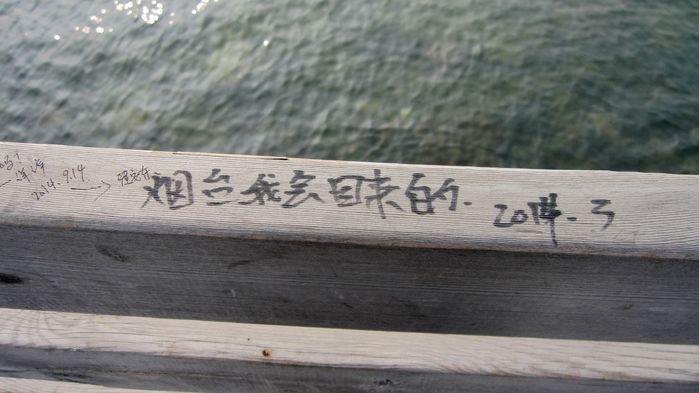 2014.9.14
烟台我会回来的. 2014.3